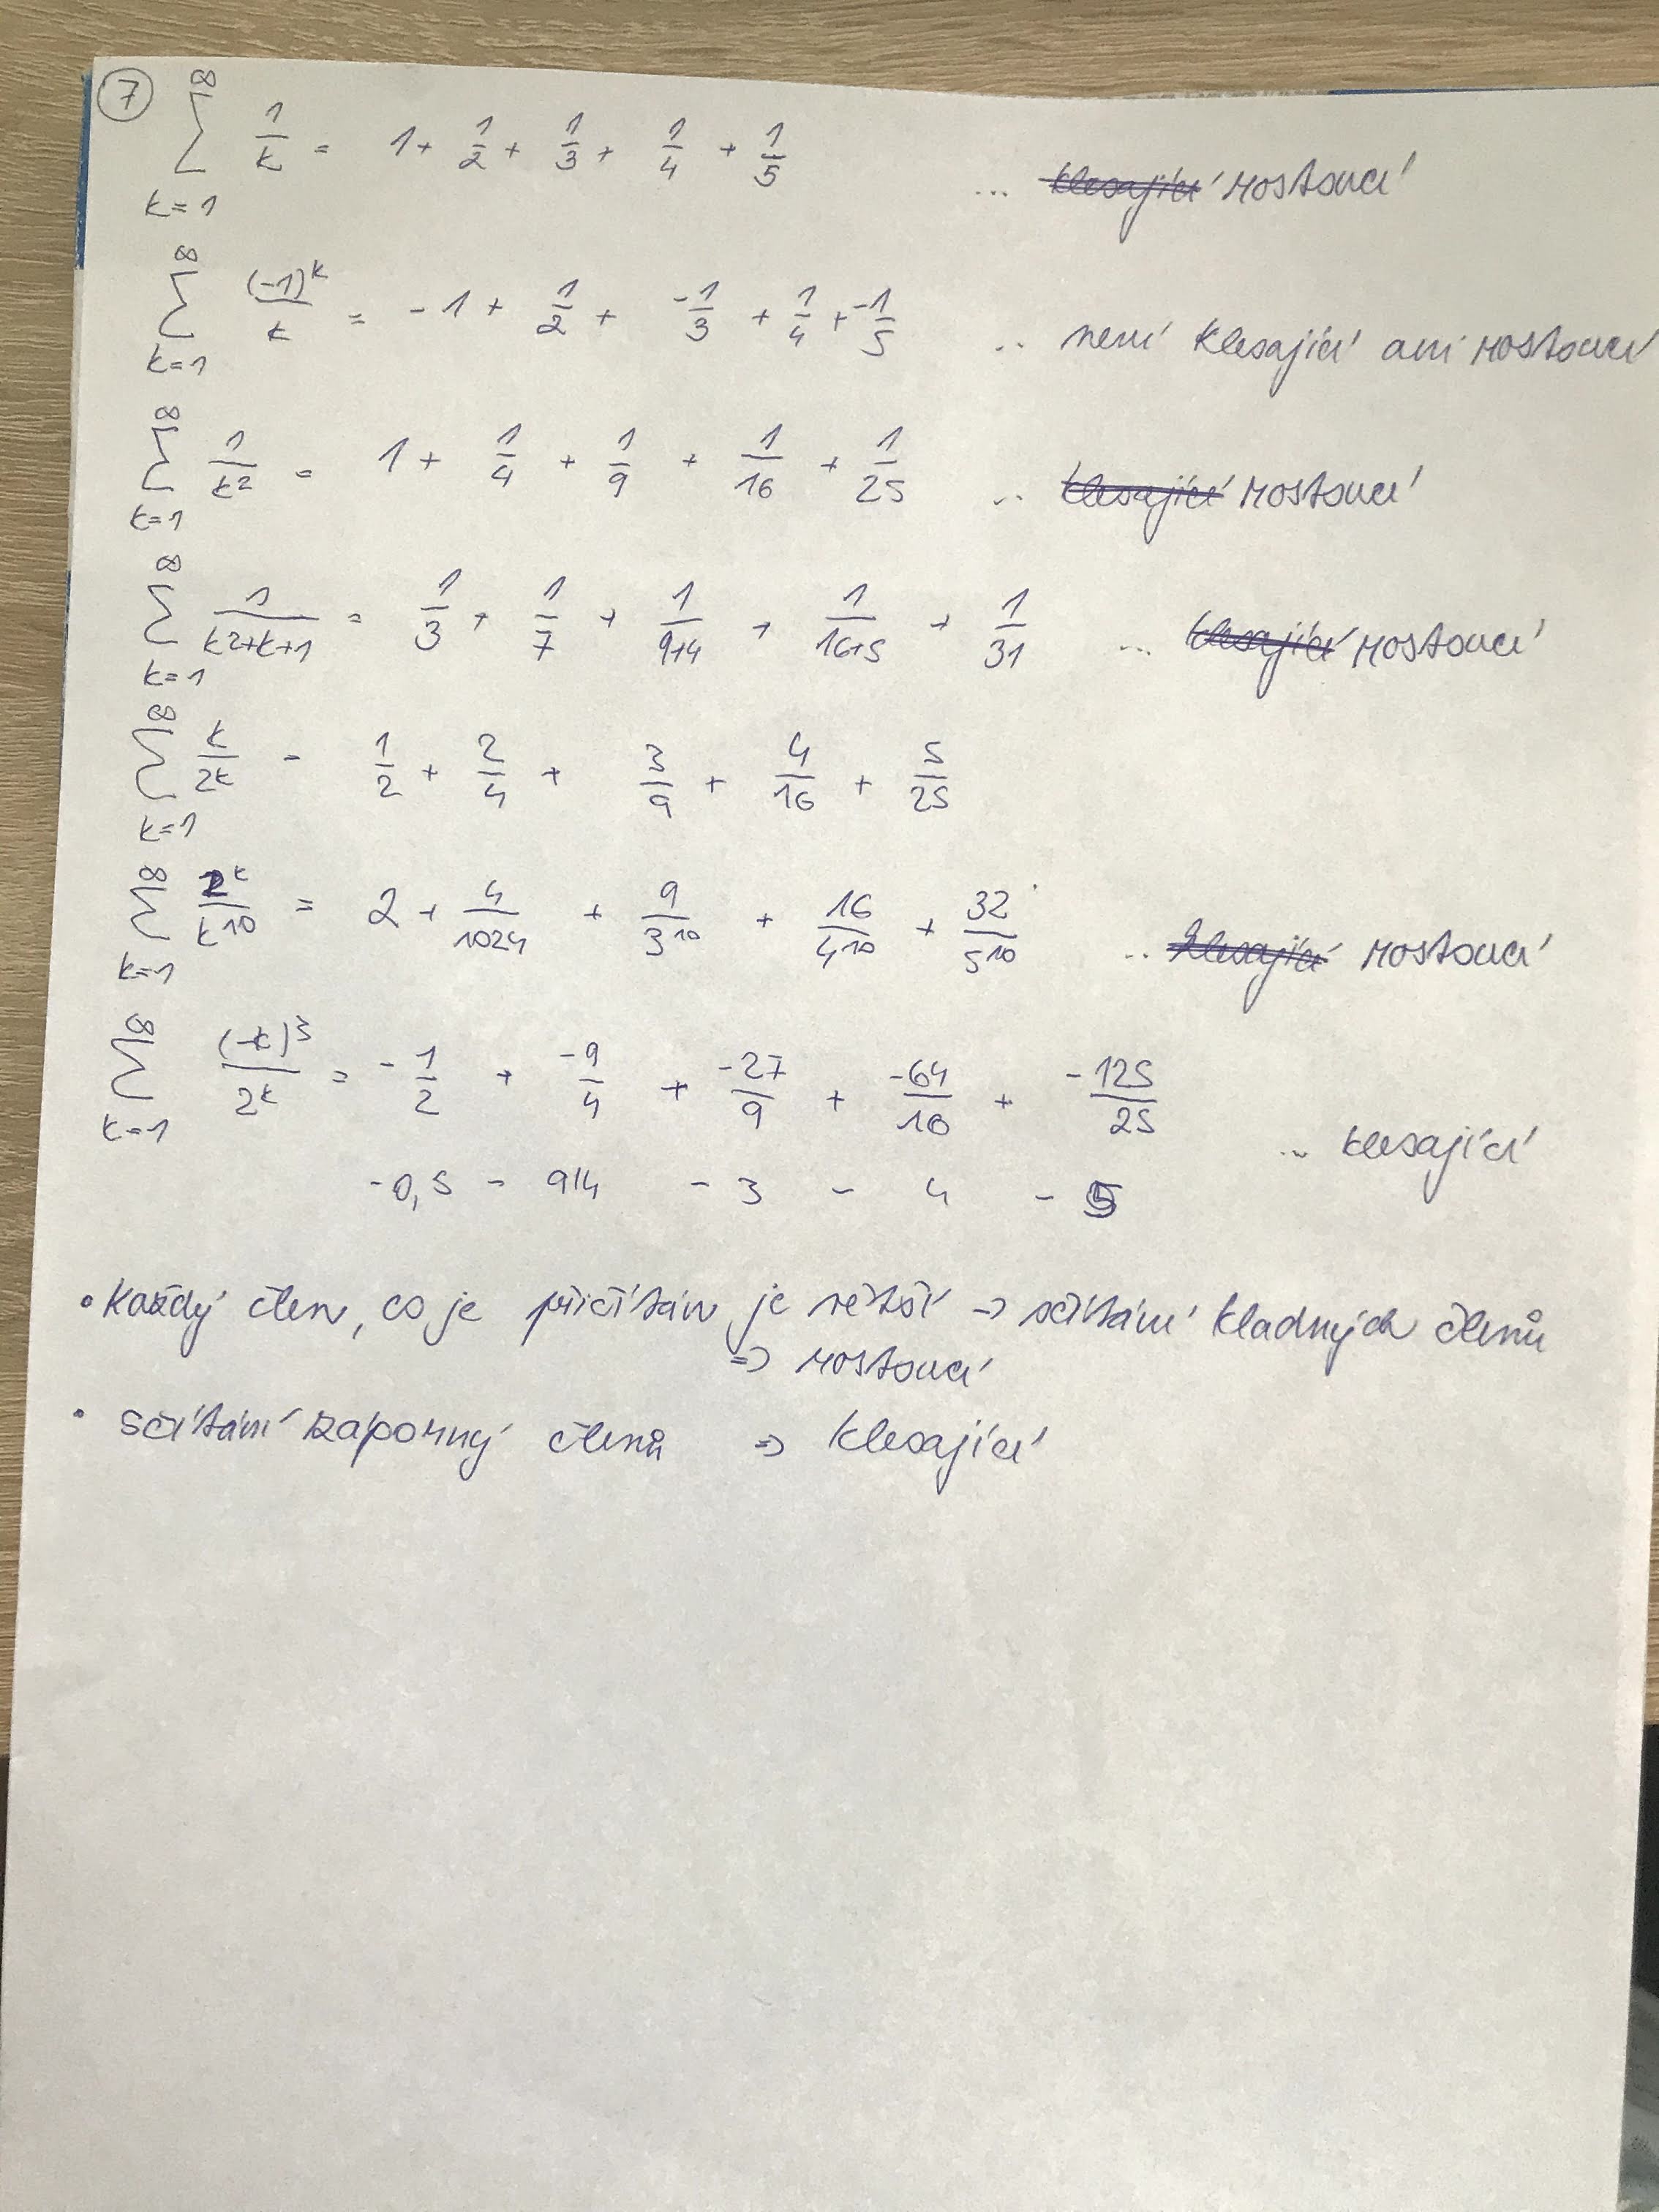 ⑦ ∞∑k=1 1/k = 1 + 1/2 + 1/3 + 1/4 + 1/5 ... ~~klesající~~ rostoucí
∞∑k=1 (-1)^k/k = -1 + 1/2 + -1/3 + 1/4 + -1/5 .. není klesající ani rostoucí
∞∑k=1 1/k² = 1 + 1/4 + 1/9 + 1/16 + 1/25 .. ~~klesající~~ rostoucí
∞∑k=1 1/(k²+k+1) = 1/3 + 1/7 + 1/(9+4) + 1/(16+5) + 1/31 ... ~~klesající~~ rostoucí
∞∑k=1 k/2k - 1/2 + 2/4 + 3/9 + 4/16 + 5/25
∞∑k=1 2^k/k^10 = 2 + 4/1024 + 9/3^10 + 16/4^10 + 32/5^10 .. ~~klesající~~ rostoucí
∞∑k=1 (-k)³/2^k = -1/2 + -9/4 + -27/9 + -64/16 + -125/25 ... klesající
-0,5 - 9/4 - 3 - 4 - 5
• každý člen, co je přičítán je větší => sčítání kladných členů
=> rostoucí
• sčítání záporný členů => klesající